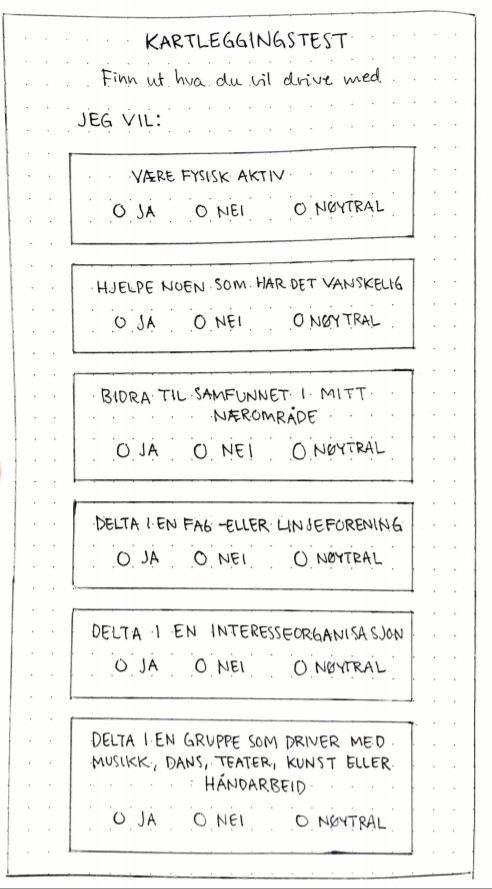 KARTLEGGINGSTEST
Finn ut hva du vil drive med
JEG VIL:
VÆRE FYSISK AKTIV
O JA O NEI O NØYTRAL
HJELPE NOEN SOM HAR DET VANSKELIG
O JA O NEI O NØYTRAL
BIDRA TIL SAMFUNNET I MITT
NÆROMRÅDE
O JA O NEI O NØYTRAL
DELTA I EN FAG -ELLER LINJEFORENING
O JA O NEI O NØYTRAL
DELTA I EN INTERESSEORGANISASJON
O JA O NEI O NØYTRAL
DELTA I EN GRUPPE SOM DRIVER MED
MUSIKK, DANS, TEATER, KUNST ELLER
HÅNDARBEID
O JA O NEI O NØYTRAL